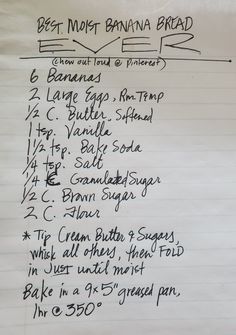 BEST MOIST BANANA BREAD
EVER
(chew out loud @ pinterest)
6 Bananas
2 Large Eggs, Rm. Temp
1/2 C. Butter, Softened
1 tsp. Vanilla
1 1/2 tsp. Bake Soda
1/4 tsp. Salt
1/4 C Granulated Sugar
1/2 C. Brown Sugar
2 C. Flour
* Tip Cream Butter & Sugars,
whisk all others, then FOLD
in JUST until moist
Bake in a 9x5" greased pan,
1hr @ 350°